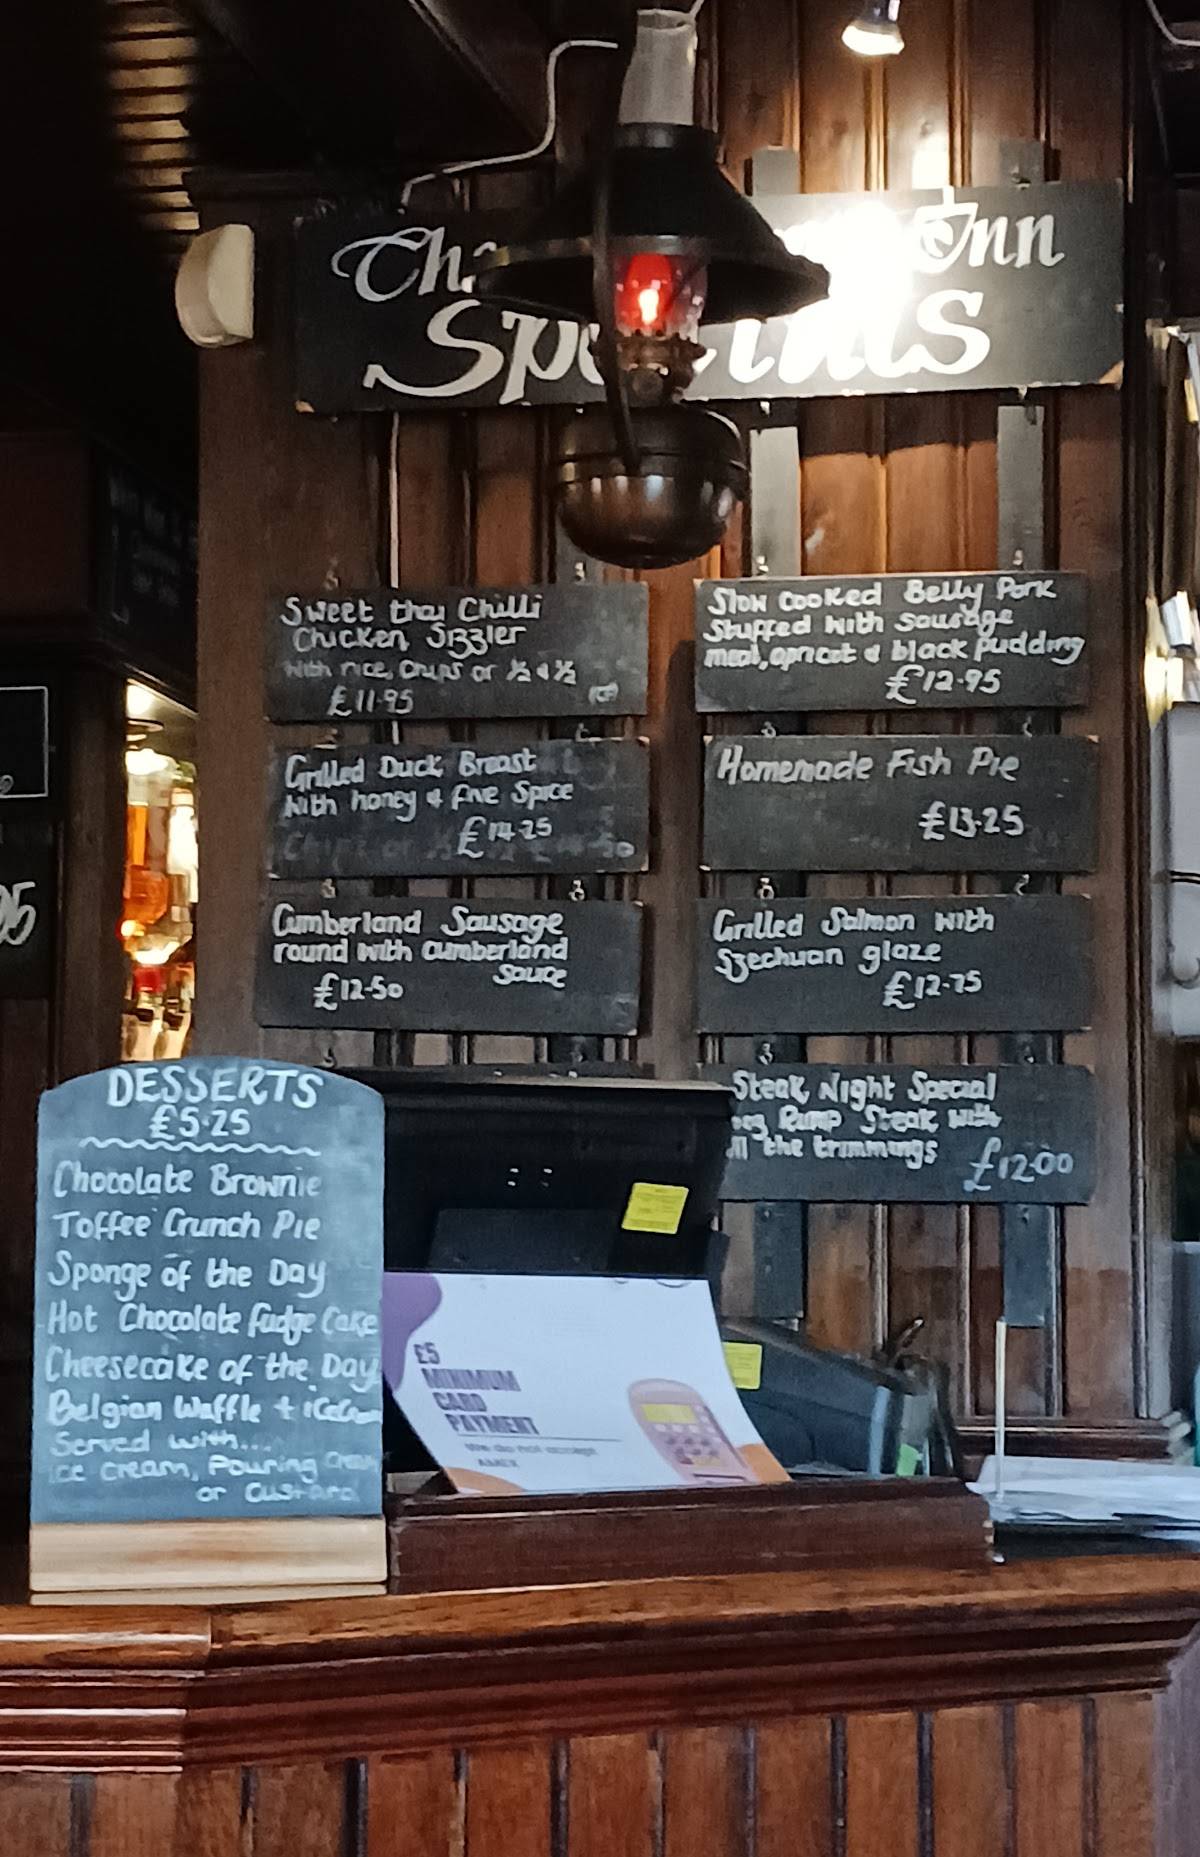 Inn
Specials
Sweet thai Chilli
Chicken Sizzler
With rice, chips or ½ & ½
£11.95
Grilled Duck Breast
With honey & five Spice
£14.25
Cumberland Sausage
round with cumberland
sauce
£12.50
Slow cooked Belly Pork
Stuffed with sausage
meat, apricot & black pudding
£12.95
Homemade Fish Pie
£13.25
Grilled Salmon with
Szechuan glaze
£12.75
Steak Night Special
Rump Steak with
the trimmings
£12.00
DESSERTS
£5.25
Chocolate Brownie
Toffee Crunch Pie
Sponge of the Day
Hot Chocolate fudge Cake
Cheesecake of the Day
Belgian Waffle + icecream
Served with....
ice cream, Pouring Cream
or Custard
£5
MINIMUM
CARD
PAYMENT
We do not accept
AMEX